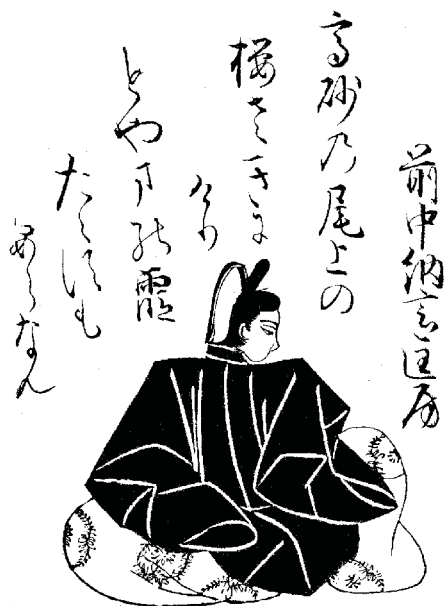 前中納言匡房
高砂乃尾上の
桜さきに
けり
とやまの霞
たゝすも
あらなん